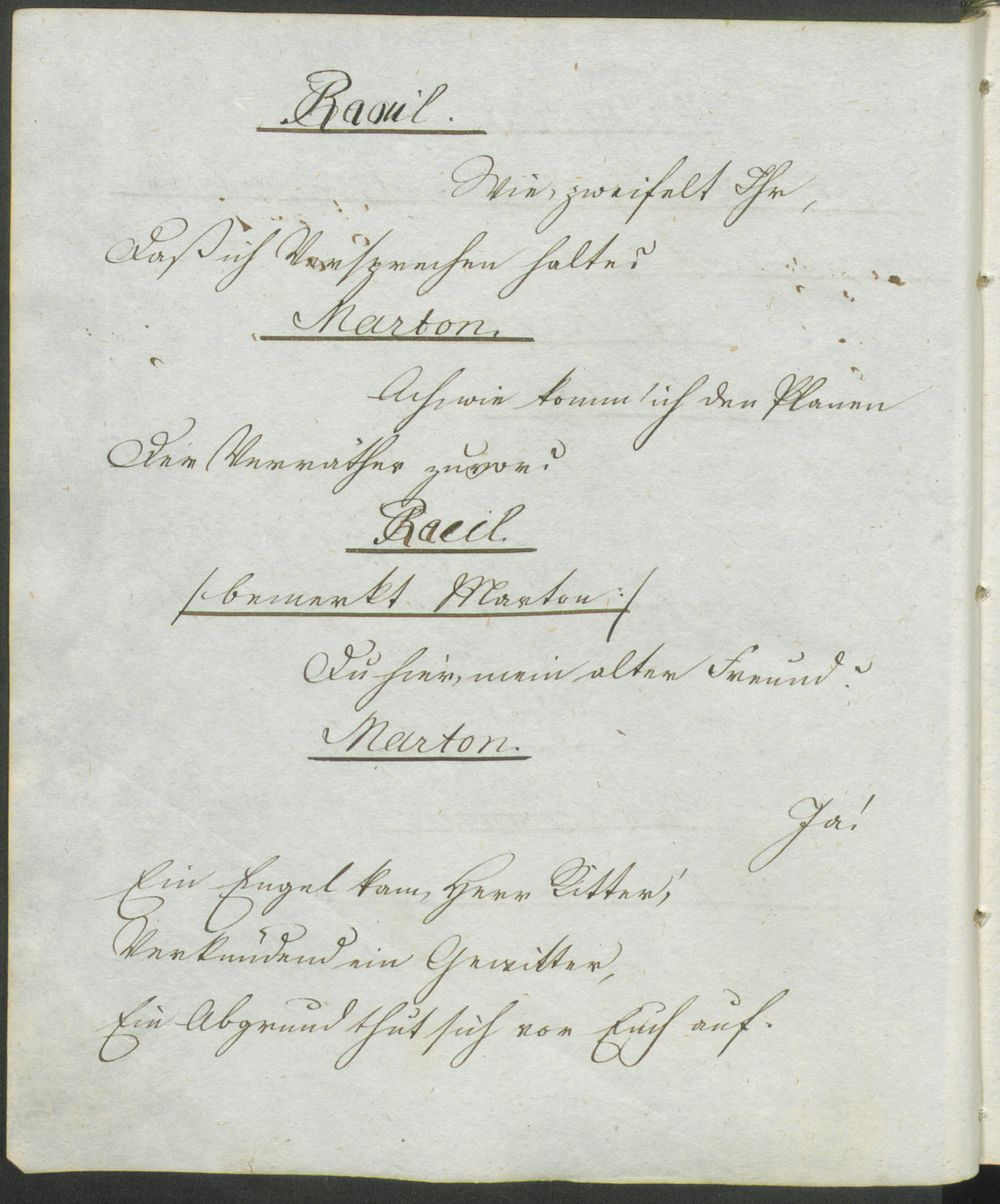 Raoul.
Wie, zweifelt Ihr,
Daß ich Versprechen halte?
Marton.
Ach, wie komm' ich den Planen
Der Verräther zuvor?
Raoul.
/: bemerkt Marton :/
Du hier, mein alter Freund?
Marton.
Ja!
Ein Engel kam, Herr Ritter,
Verkündend ein Gewitter,
Ein Abgrund thut sich vor Euch auf.